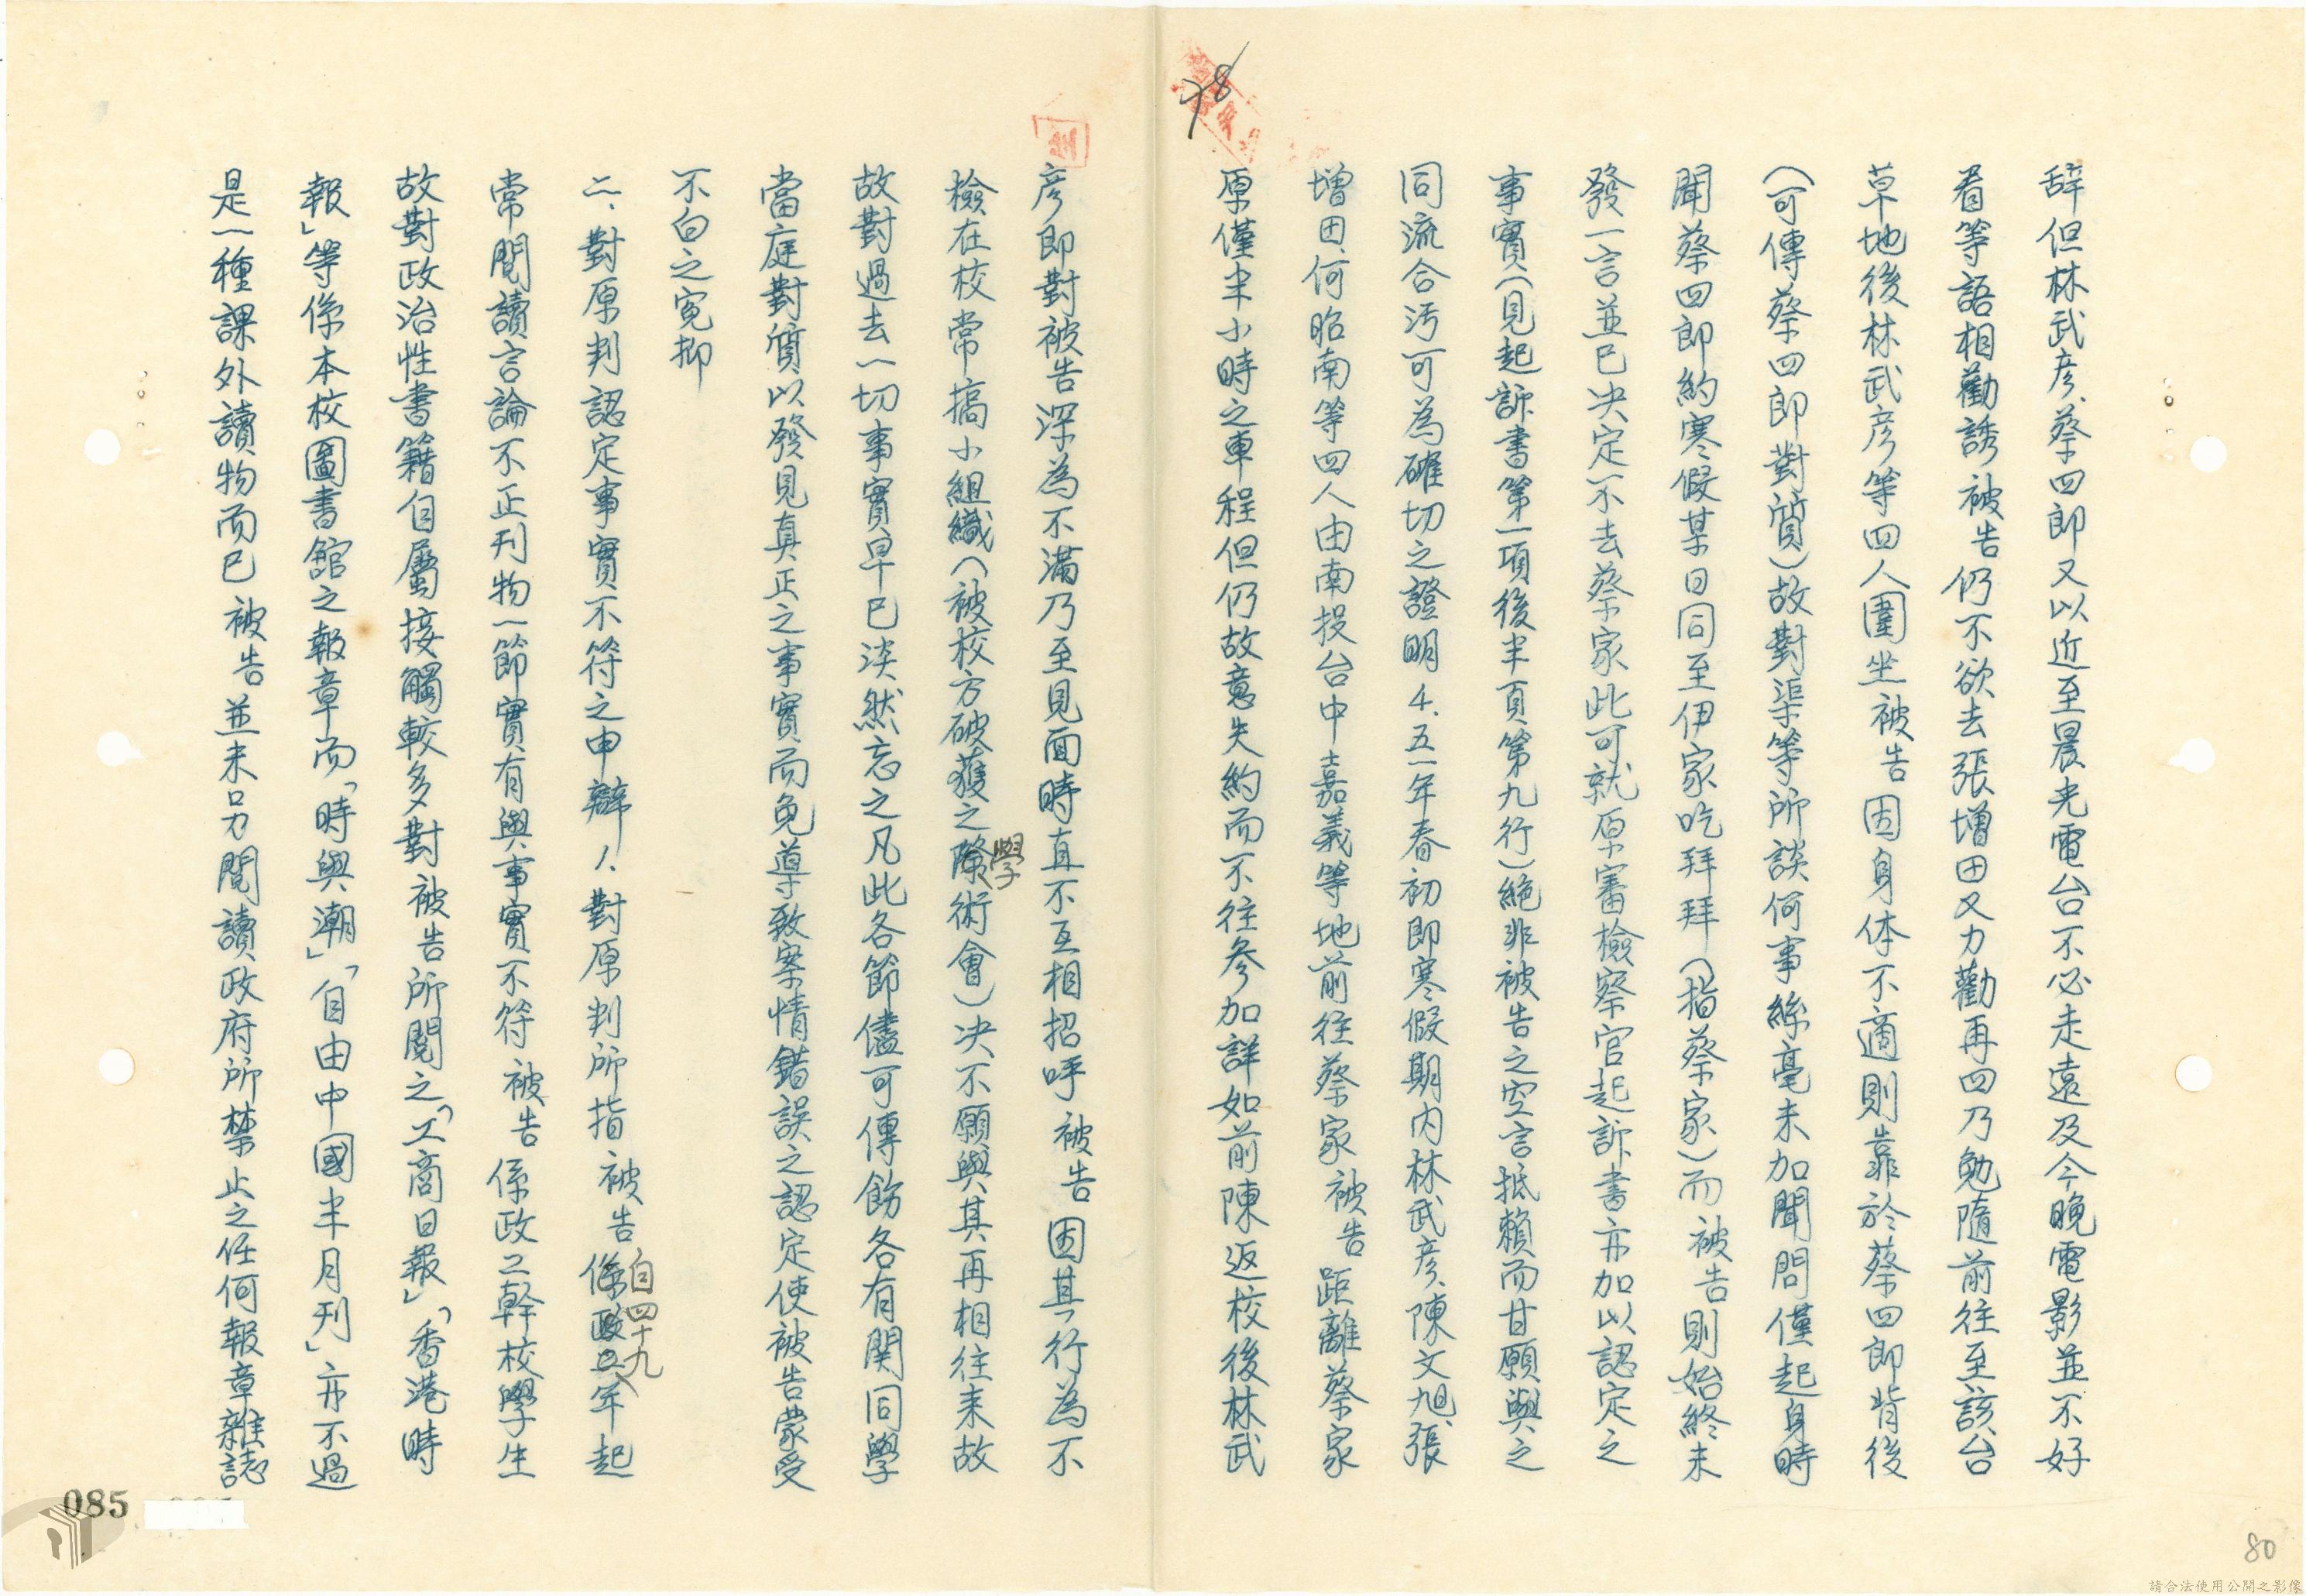 辞但林武彦、蔡四郎又以近至晨光電台不必走遠及今晚電影並不好
看等語相勸誘被告仍不欲去張增田又力勸再四乃勉隨前往至該台
草地後林武彦等四人圍坐被告因身体不適則靠於蔡四郎背後
(可傳蔡四郎對質)故對渠等所談何事絲毫未加聞問僅起身時
聞蔡四郎約寒假某日同至伊家吃拜拜(指蔡家)而被告則始終未
發一言並已决定不去蔡家此可就原審檢察官起訴書亦加以認定之
事實(見起訴書第一項後半頁第九行)絕非被告之空言抵賴而甘願與之
同流合污可為確切之證明4.五一年春初即寒假期内林武彦、陳文旭、張
增田、何昭南等四人由南投台中嘉義等地前往蔡家被告距離蔡家
原僅半小時之車程但仍故意失約而不往参加詳如前陳返校後林武
彦即對被告深為不滿乃至見面時直不互相招呼被告因其行為不
檢在校常搞小組織(被校方破獲之學術會)决不願與其再相往来故
故對過去一切事實早已淡然忘之凡此各節儘可傳飭各有関同學
當庭對質以發見真正之事實而免導致案情錯誤之認定使被告蒙受
不白之寃抑
二、對原判認定事實不符之申辯1.對原判所指被告自四十九年起
常閱讀言論不正刊物一節實有與事實不符被告係政工幹校學生
故對政治性書籍自屬接觸較多對被告所閱之「工商日報」「香港時
報」等係本校圖書館之報章而「時與潮」「自由中國半月刊」亦不過
是一種課外讀物而已被告並未另閱讀政府所禁止之任何報章雜誌
78
085
80
請合法使用公開之影像